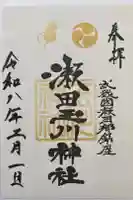 奉拝
武蔵國荏原郡鎮座
瀬田玉川神社
令和八年三月一日